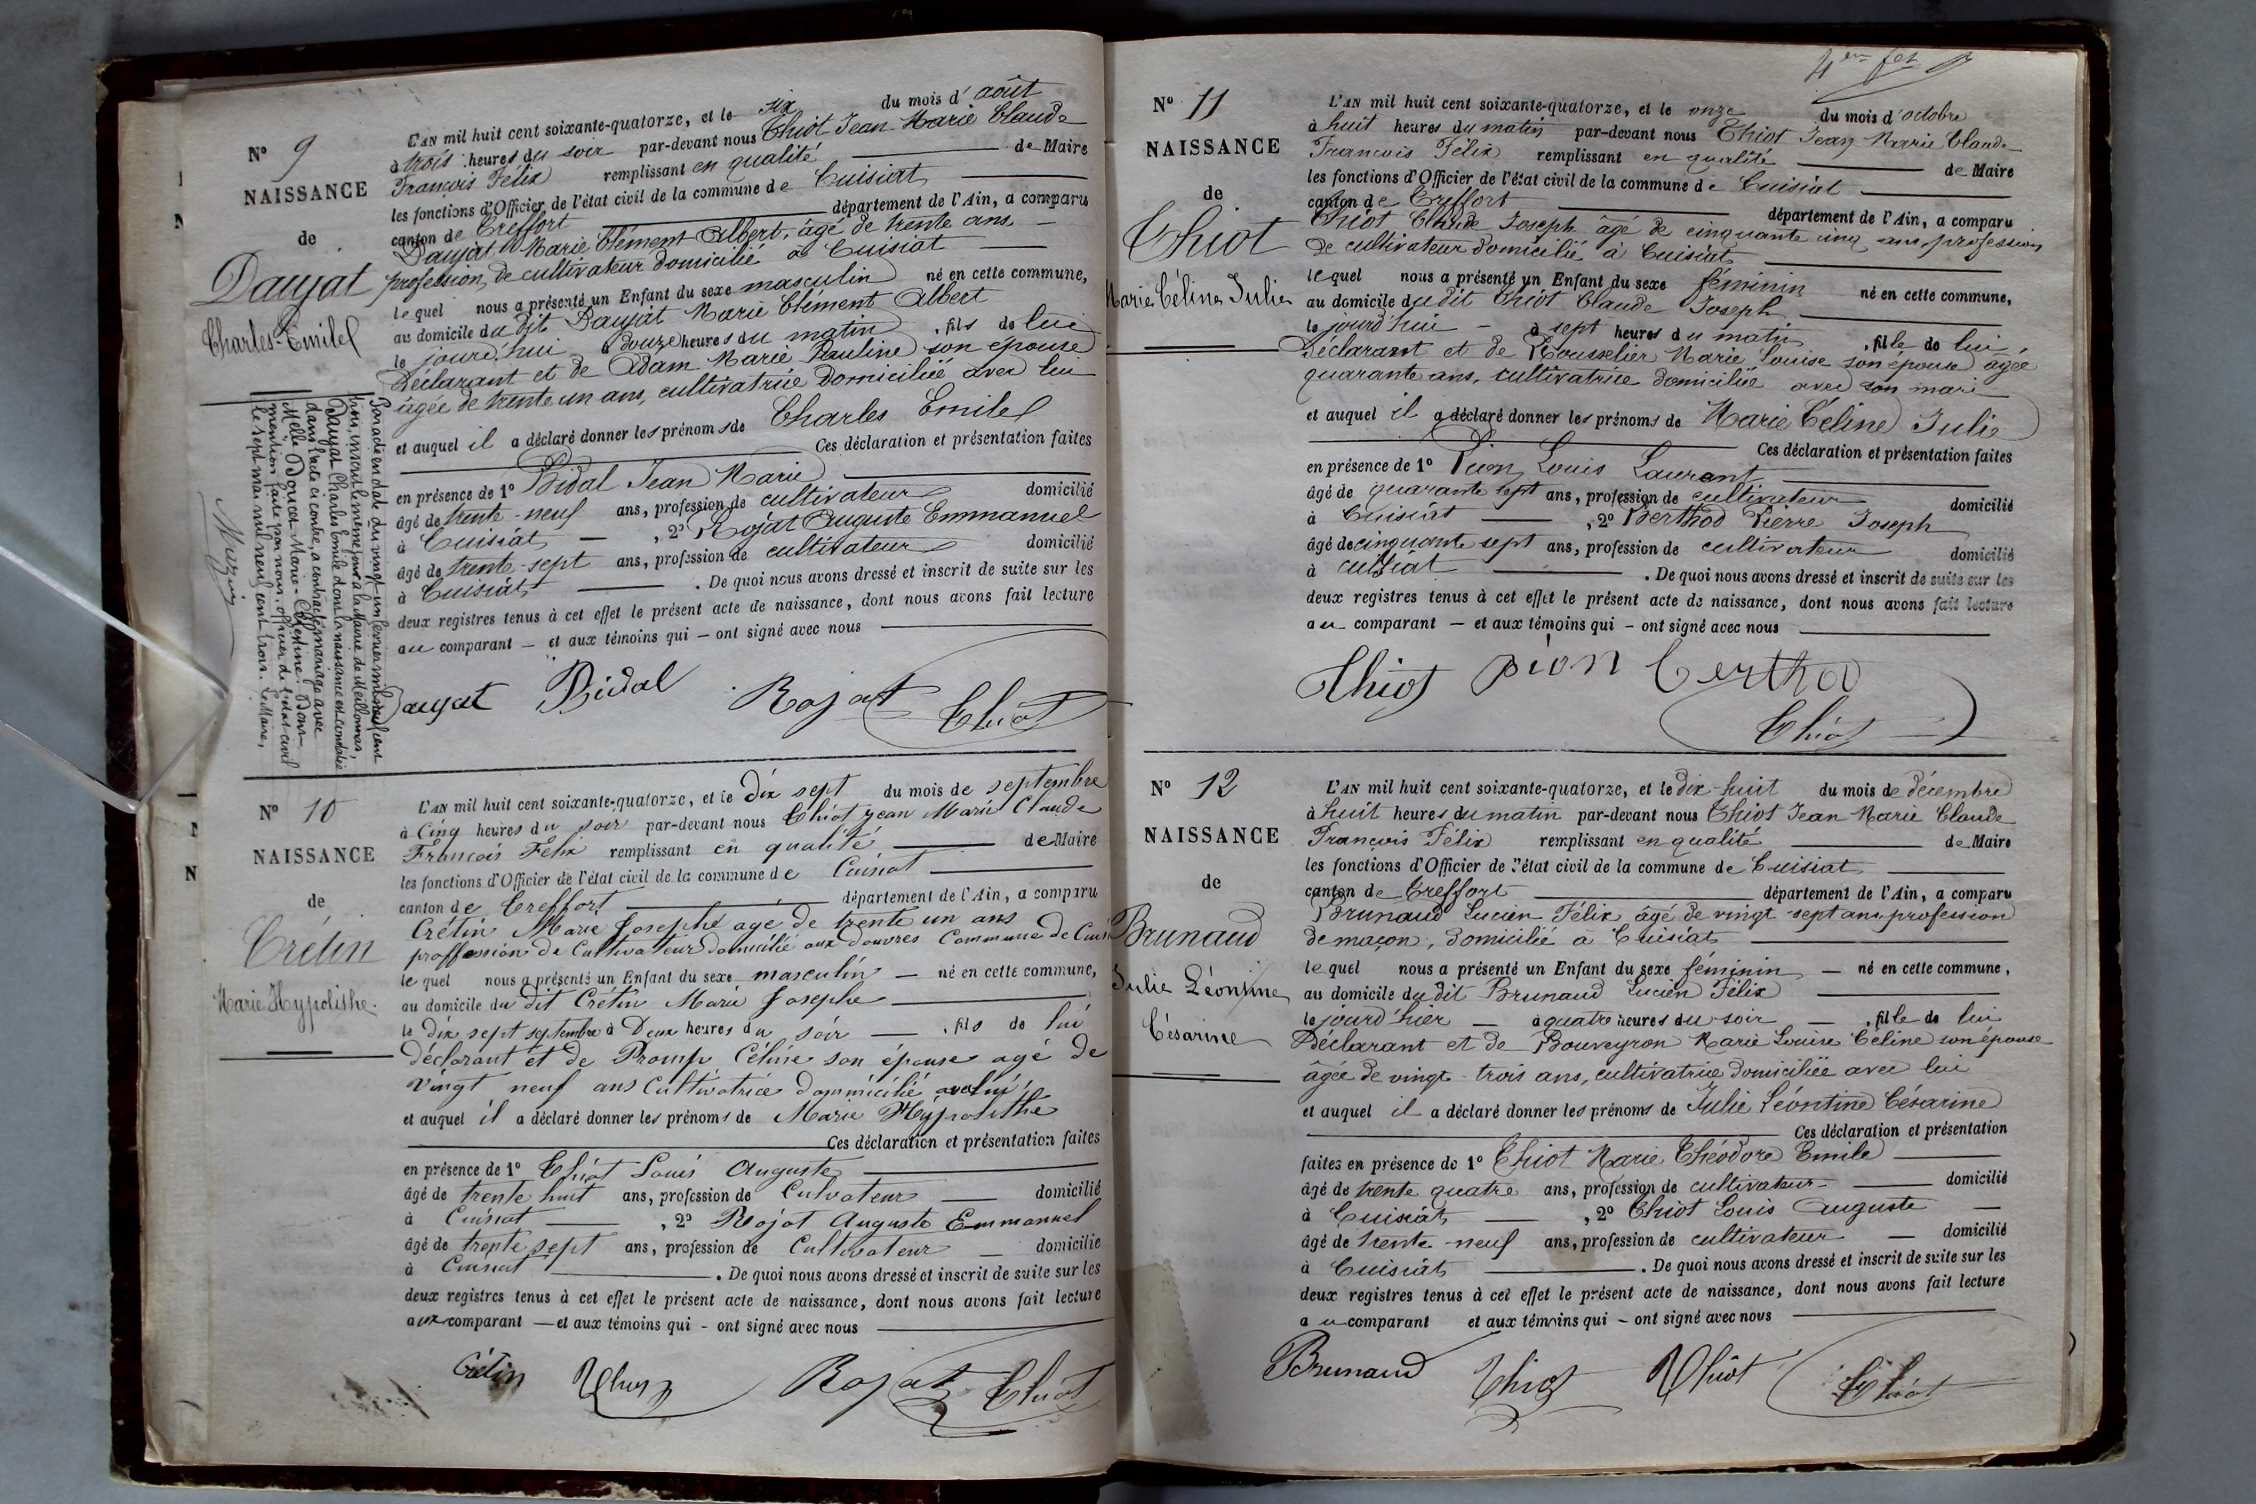 Nº 9
NAISSANCE
de
Daujat
Charles-Emile
L'AN mil huit cent soixante-quatorze, et le six du mois d'août
à trois heures du soir par-devant nous Thiot Jean Marie Claude
François Félix remplissant en qualité de Maire
les fonctions d'Officier de l'état civil de la commune de Cuisiat
canton de Treffort département de l'Ain, a comparu
Daujat Marie Clément Albert, âgé de trente ans,
profession de cultivateur domicilié à Cuisiat
lequel nous a présenté un Enfant du sexe masculin né en cette commune,
au domicile du dit Daujat Marie Clément Albert
le jourd'hui à douze heures du matin, fils de lui
Déclarant et de Adam Marie Pauline son épouse
âgée de trente un ans, cultivatrice domiciliée avec lui
et auquel il a déclaré donner les prénoms de Charles Emile
Ces déclaration et présentation faites
en présence de 1º Bidal Jean Marie
âgé de trente-neuf ans, profession de cultivateur domicilié
à Cuisiat, 2º Rojat Auguste Emmanuel
âgé de trente-sept ans, profession de cultivateur domicilié
à Cuisiat. De quoi nous avons dressé et inscrit de suite sur les
deux registres tenus à cet effet le présent acte de naissance, dont nous avons fait lecture
au comparant et aux témoins qui ont signé avec nous
Daujat Bidal Rojat Thiot
Par acte en date du vingt-un février mil neuf cent
trois, inscrit le même jour à la Mairie de Meillonnas
Daujat Charles Emile dont la naissance est constatée
dans l'acte ci contre, a contracté mariage avec
Melle Doucet Marie-
mention faite par nous, officier de l'état-civil
le sept mai mil neuf cent trois. Le Maire,
Nº 10
NAISSANCE
de
Crétin
Marie Hypolithe.
L'AN mil huit cent soixante-quatorze, et le dix sept du mois de septembre
à Cinq heures du soir par-devant nous Thiot Jean Marie Claude
François Félix remplissant en qualité de Maire
les fonctions d'Officier de l'état civil de la commune de Cuisiat
canton de Treffort département de l'Ain, a comparu
Crétin Marie Josephe agé de trente un ans
proffession de Cultivateur domicilié aux douvres Commune de Cuisi
lequel nous a présenté un Enfant du sexe masculin né en cette commune,
au domicile du dit Crétin Marie Josephe
le dix sept septembre à Deux heures du soir, fils de lui
déclarant et de Promp Céline son épouse agé de
vingt neuf ans Cultivatrice dommicilié avec lui
et auquel il a déclaré donner les prénoms de Marie Hypolithe
Ces déclaration et présentation faites
en présence de 1º Thiot Louis Auguste
âgé de trente huit ans, profession de Culvateur domicilié
à Cuisiat, 2º Rojat Auguste Emmanuel
âgé de trente sept ans, profession de Cultivateur domicilié
à Cuisiat. De quoi nous avons dressé et inscrit de suite sur les
deux registres tenus à cet effet le présent acte de naissance, dont nous avons fait lecture
aux comparant et aux témoins qui ont signé avec nous
Crétin Thiot Rojat Thiot
Nº 11
NAISSANCE
de
Thiot
Marie Céline Julie
L'AN mil huit cent soixante-quatorze, et le onze du mois d'octobre
à huit heures du matin par-devant nous Thiot Jean Marie Claude
François Félix remplissant en qualité de Maire
les fonctions d'Officier de l'état civil de la commune de Cuisiat
canton de Treffort département de l'Ain, a comparu
Thiot Claude Joseph âgé de cinquante cinq ans, profession
de cultivateur domicilié à Cuisiat
lequel nous a présenté un Enfant du sexe féminin né en cette commune,
au domicile du dit Thiot Claude Joseph
le jourd'hui à sept heures du matin, fille de lui
Déclarant et de Rousselier Marie Louise son épouse âgée
quarante ans, cultivatrice domiciliée avec son mari
et auquel il a déclaré donner les prénoms de Marie Céline Julie
Ces déclaration et présentation faites
en présence de 1º Pion Louis Laurent
âgé de quarante sept ans, profession de cultivateur domicilié
à Cuisiat, 2º Berthod Pierre Joseph
âgé de cinquante sept ans, profession de cultivateur domicilié
à cuisiat. De quoi nous avons dressé et inscrit de suite sur les
deux registres tenus à cet effet le présent acte de naissance, dont nous avons fait lecture
au comparant et aux témoins qui ont signé avec nous
Thiot pion berthod
Thiot
Nº 12
NAISSANCE
de
Brunaud
Julie Léontine
Césarine
L'AN mil huit cent soixante-quatorze, et le dix-huit du mois de décembre
à huit heures du matin par-devant nous Thiot Jean Marie Claude
François Félix remplissant en qualité de Maire
les fonctions d'Officier de l'état civil de la commune de Cuisiat
canton de Treffort département de l'Ain, a comparu
Brunaud Lucien Félix âgé de vingt-sept ans, profession
de maçon, domicilié à Cuisiat
lequel nous a présenté un Enfant du sexe féminin né en cette commune,
au domicile du dit Brunaud Lucien Félix
le jourd'hier à quatre heures du soir, fille de lui
Déclarant et de Bouveyron Marie Louise Céline son épouse
âgée de vingt-trois ans, cultivatrice domiciliée avec lui
et auquel il a déclaré donner les prénoms de Julie Léontine Césarine
Ces déclaration et présentation
faites en présence de 1º Thiot Marie Théodore Emile
âgé de trente quatre ans, profession de cultivateur domicilié
à Cuisiat, 2º Thiot Louis Auguste
âgé de trente-neuf ans, profession de cultivateur domicilié
à Cuisiat. De quoi nous avons dressé et inscrit de suite sur les
deux registres tenus à cet effet le présent acte de naissance, dont nous avons fait lecture
au comparant et aux témoins qui ont signé avec nous
Brunaud Thiot Thiot Thiot